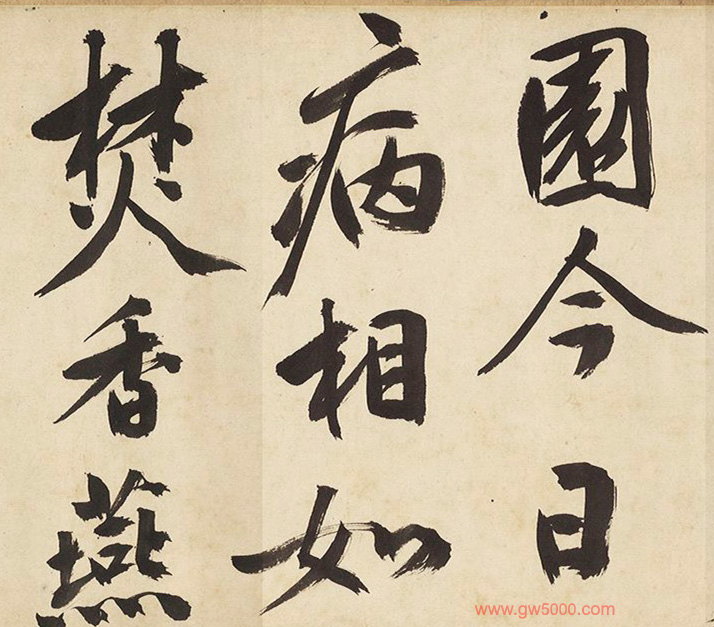 園今日
病相如
焚香燕
www.gw5000.com